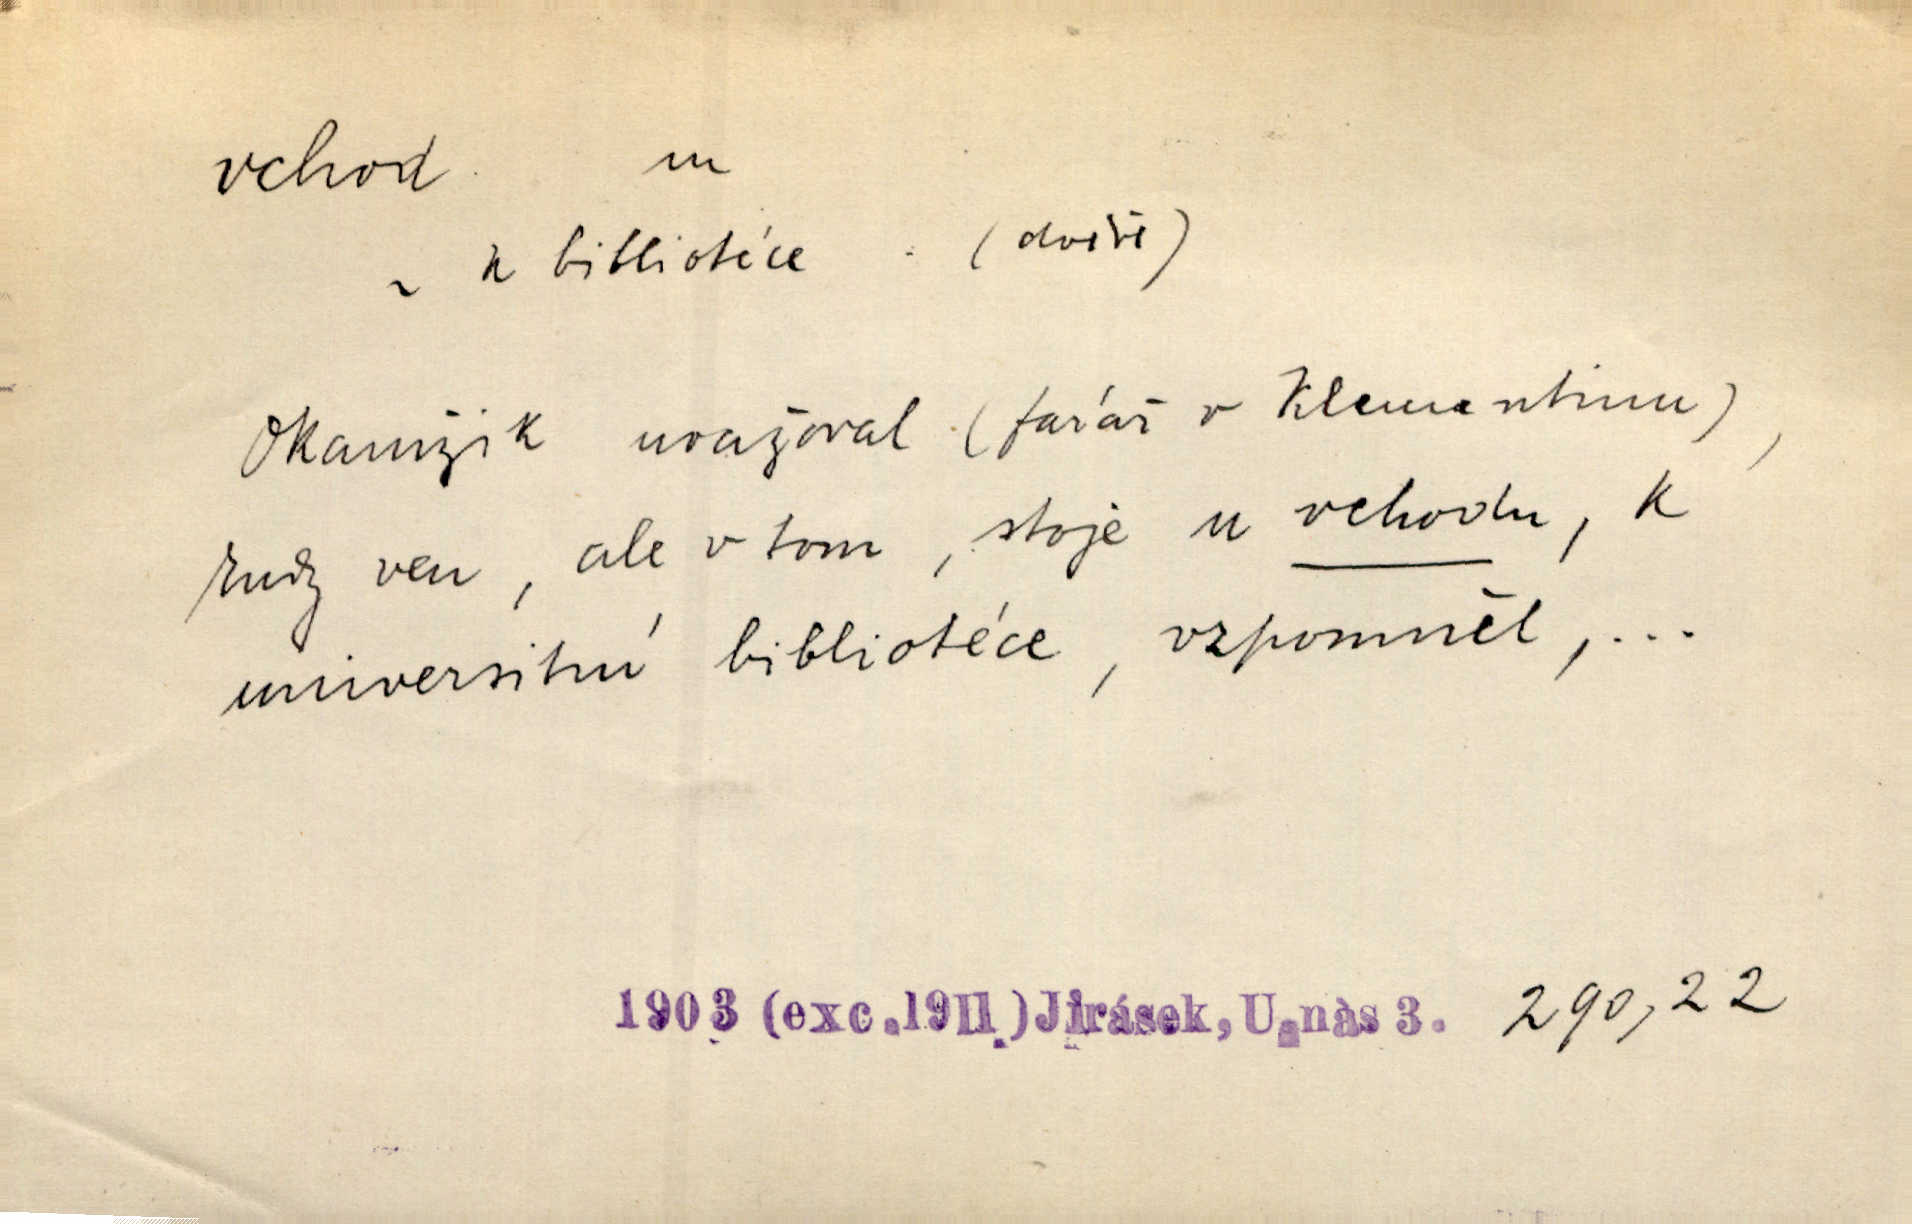 vchod m
~ k bibliotéce (dveře)
Okamžik uvažoval (farář v Klementinu),
kudy ven, ale v tom, stoje u vchodu, k
universitní bibliotéce, vzpomněl,...
1903 (exc.1911) Jirásek, U nàs 3. 290,22